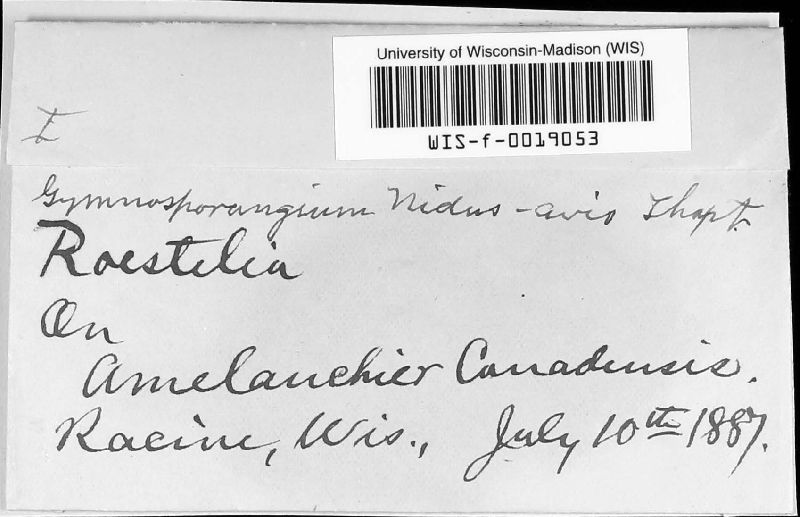 University of Wisconsin-Madison (WIS)
WIS-f-0019053
I
Gymnosporangium Nidus-avis Thaxt.
Roestelia
On
Amelanchier Canadensis.
Racine, Wis., July 10th 1887.